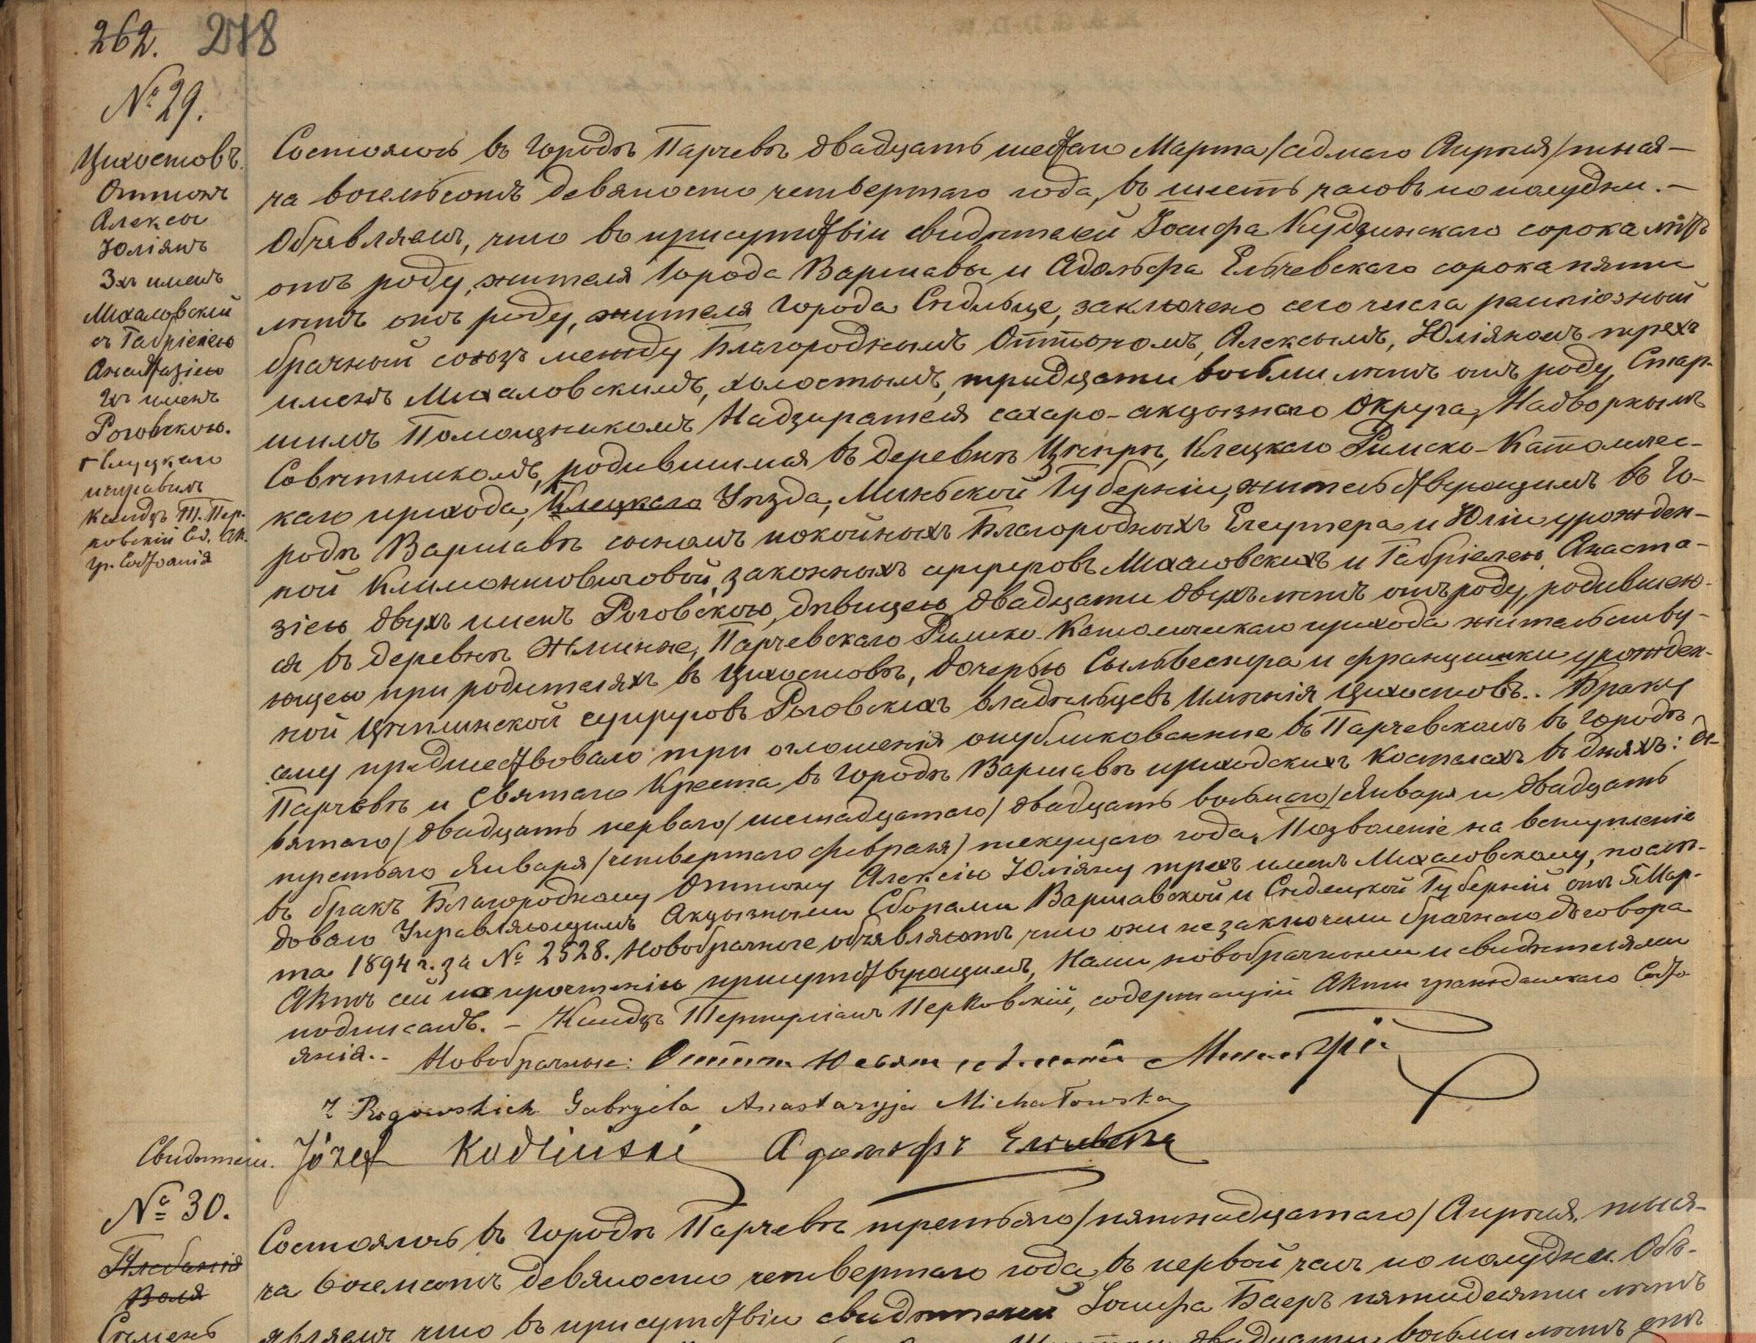 262. 278
№ 29.
Цихостовъ.
Оттонъ
Алексы
Юліянъ
3хъ именъ
Михаловскій
съ Габріелею
Анастазіею
2хъ именъ
Роговскою.
Слуцкаго
исправилъ
Ксендзъ Т. Пер-
ковскій Сод. Ак.
гр. Состоянія
Состоялось въ городѣ Парчевѣ двадцать шестаго Марта /седмаго Апрѣля/ тыся-
ча восемьсотъ девяносто четвертаго года, въ шесть часовъ пополудни. —
Объявляемъ, что въ присутствіи свидѣтелей Іосифа Кудзинскаго сорока лѣтъ
отъ роду, жителя города Варшавы и Адольфа Ельчевскаго сорока пяти
лѣтъ отъ роду, жителя города Сѣдльце, заключено сего числа религіозный
брачный союзъ между Благороднымъ Оттономъ, Алексымъ, Юліяномъ трехъ
именъ Михаловскимъ, холостымъ, тридцати восьми лѣтъ отъ роду, Стар-
шимъ Помощникомъ Надзирателя сахаро-акцизнаго Округа, Надворнымъ
Совѣтникомъ, родившимся въ деревнѣ Цѣпрѣ, Клецкаго Римско-Католичес-
каго прихода, Клецкаго Уѣзда, Минской Губерніи, жительствующимъ въ Го-
родѣ Варшавѣ сыномъ покойныхъ Благородныхъ и Юліи урожден-
ной Климонтовичовой, законныхъ супруговъ Михаловскихъ и Габріелею Анаста-
зіею двухъ именъ Роговскою, дѣвицею, двадцати двухъ лѣтъ отъ роду, родившею-
ся въ деревнѣ Жминне, Парчевскаго Римско-Католическаго прихода жительству-
ющею при родителяхъ въ Цихостовѣ, дочерью Сыльвестра и Францишки урожден-
ной Цѣплинской супруговъ Роговскихъ владѣльцевъ имѣнія Цихостовъ.. Браку
сему предшествовало три оглошенія опубликованные въ Парчевскомъ въ городѣ
Парчевѣ и Святаго Креста въ городѣ Варшавѣ приходскихъ Костелахъ въ дняхъ: де-
вятаго /двадцать перваго/ шестнадцатаго /двадцать восьмаго/ Января и двадцать
третьяго Января /четвертаго февраля/ текущаго года. Позволеніе на вступленіе
въ бракъ Благородному Оттону Алексію Юліяну трехъ именъ Михаловскому, послѣ-
довало Управляющимъ Акцизными Сборами Варшавской и Сѣдлецкой Губерній отъ 5 Мар-
та 1894 г. за № 2528. Новобрачные объявляютъ что они не заключили брачнаго договора
Актъ сей по прочтеніи присутствующимъ, Нами новобрачными и свидѣтелями
подписанъ. — Ксендзъ Тертуліанъ Перковскій, содержащій Акты гражданскаго Состо-
янія.. Новобрачные: Оттонъ Юльян
z Rogowskich Gabryela Anastazyja Michałowska
Свидѣтели. Józef Kudziński Адольфъ Ельчевскій
№ 30.
Плебанія
Воля
Состоялось въ городѣ Парчевѣ третьяго /пятнадцатаго/ Апрѣля тыся-
ча восемьсотъ девяносто четвертаго года, въ первой часъ по полудни. Объ-
являемъ что въ присутствіи свидѣтелей Іосифа Баеръ пятидесяти лѣтъ
двадцати восьми лѣтъ отъ